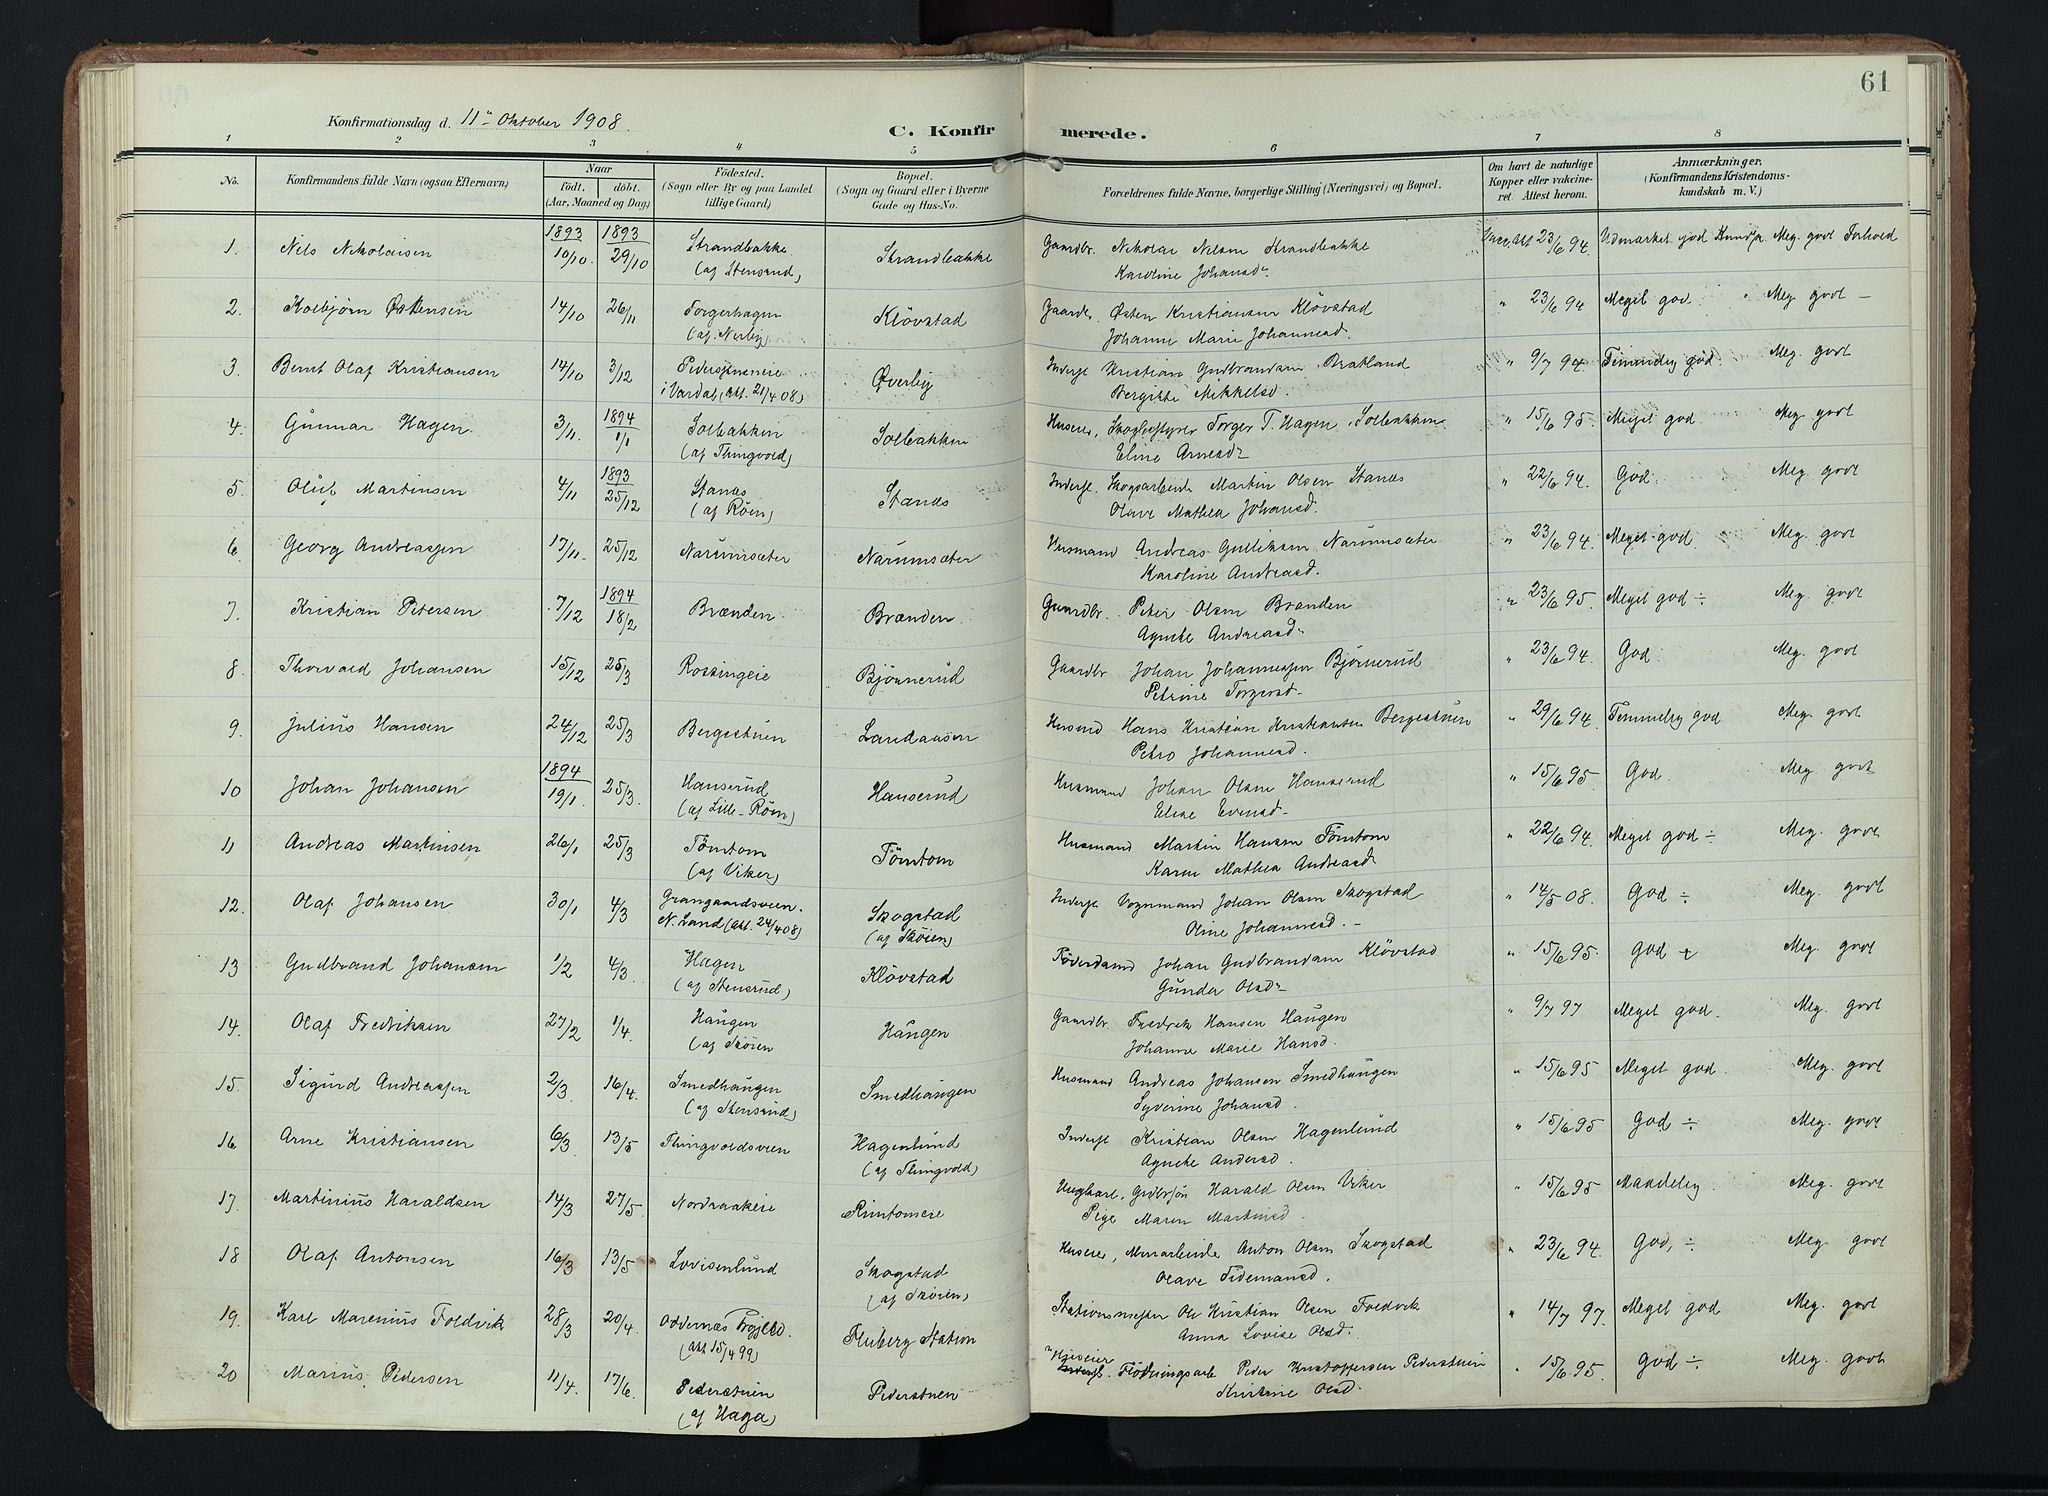 61
Konfirmationsdag d. 11te Oktober 1908.
C. Konfirmerede.
1 2 3 4 5 6 7 8
No.
Konfirmandens fulde Navn (ogsaa Efternavn)
Naar
født. døbt.
(Aar, Maaned og Dag)
Fødested.
(Sogn eller By og paa Landet
tillige Gaard)
Bopæl.
(Sogn og Gaard eller i Byerne
Gade og Hus-No.
Forældrenes fulde Navne, borgerlige Stilling (Næringsvei) og Bopæl.
Om havt de naturlige
Kopper eller vakcine-
ret. Attest herom.
Anmærkninger.
(Konfirmandens Kristendoms-
kundskab m. V.)
1. Nels Nikolaisen 1893 10/10. 1893 29/10 Strandbakke Strandbakke Gaardbr. Nikolai Nilsen Strandbakke 23/6 94. Udmærket god Meg. godt Forhold
(af Stensrud) Karoline Johansd.
2. Kolbjørn Østensen 14/10 26/11 Torgerhagen Kløvstad Gaardb. Østen Kristiansen Kløvstad " 23/6 94 Meget god. Meg. godt
(af Nerby) Johanne Marie Johannesd.
3. Bernt Olaf Kristiansen 14/10 3/12 Øverby Inderst Kristian Gudbrandsen " 9/7 94 Temmelig god. Meg. godt
i Vardal (att. 21/4 08) Bergitte Mikkelsd.
4. Gunnar Hagen 3/11. 1894 1/1 Solbakken Solbakken Huseier, Skogbestyrer Torger T. Hagen, Solbakken " 15/6 95. Meget god. Meg. godt
(af Thingvold) Eline Arnesd.
5. Oluf Martinsen 4/11 1893 25/12 Stanes Stanes Inderst. Skogsarbeide Martin Olsen Stanes " 22/6 94. God. Meg. godt
(af Røen) Olave Mathea Johansd.
6 Georg Andreassen 17/11. 25/12 Narumsæter Narumsæter Husmand Andreas Gulliksen Narumsæter " 23/6 94. Meget god. Meg. godt
Karoline Andreasd.
7. Kristian Petersen 7/12 1894 18/2 Brænden Brænden. Gaardbr. Peter Olsen Brænden " 23/6 95. Meget god ÷ Meg. godt
Agnethe Andreasd.
8 Thorvald Johansen 15/12 25/3 Rossingeie Bjørnerud Gaardbr Johan Johannessen Bjørnerud " 23/6 94. God. Meg. godt
Petrine Torgersd.
9. Julius Hansen 24/12 25/3 Bergestuen Landaasen Husmd Hans Kristian Kristiansen Bergestuen " 29/6 94. Temmelig god. Meg. godt
Petra Johannesd.
10 Johan Johansen 1894 19/1. 25/3. Hanserud Hanserud Husmand Johan Olsen Hanserud " 15/6 95. God. Meg. godt
(af Lille-Røen) Eline Evensd.
11 Andreas Martinsen 26/1 25/3 Tømtom Tømtom Husmand Martin Hansen Tømtom " 22/6 94. Meget god ÷ Meg. godt
(af Viker) Karen Mathea Andreasd
12. Olaf Johansen 30/1 4/3 Grangaardsveien. Skogstad Inderst Vognmand Johan Olsen Skogstad " 14/5 08. God ÷ Meg. godt
N. Land (att. 24/4 08) (af Skøien) Oline Johannesd.
13 Gudbrand Johansen 1/2 4/3. Hagen Kløvstad Føderaadmd Johan Gudbrandsen Kløvstad " 15/6 95. God ÷ Meg. godt
(af Stensrud) Gunder Olsd.
14. Olaf Fredriksen 27/2 1/4. Haugen Haugen Gaardbr. Fredrik Hansen Haugen " 9/7 97 Meget god. Meg. godt
(af Skøien Johanne Marie Hansd.
15. Sigurd Andreassen 2/3. 16/4. Smedhaugen Smedhaugen Husmand Andreas Johansen Smedhaugen " 15/6 95 Meget god. Meg. godt
(af Stensrud) Syverine Johansd.
16 Arne Kristiansen 6/3. 13/5 Thingvoldsveien Hagenlund Inderst Kristian Olsen Hagenlund " 15/6 95 God ÷ Meg. godt
(af Thingvold) Agnethe Andersd.
17. Martinius Haraldsen 14/3 27/5. Nordraakeie Rimtomeie Ungkarl, Gudbrsøn Harald Olsen Viker " 15/6 95 Maadelig. Meg. godt
Pige Maren Martinsd.
18 Olaf Antonsen 16/3 13/5 Lovisenlund Skogstad Huseier, Murarbeide Anton Olsen Skogstad " 23/6 94. God, ÷ Meg. godt
(af Skøien) Olave Tidemansd.
19. Karl Marenius Foldvik 28/3 20/4. Odvernæs Fluberg Station Stationsmester Ole Kristian Olsen Foldvik " 14/7 97. Meget god Meg. godt
(att 15/4 99) Anna Lovise Olsd.
20 Marius Pedersen 11/4. 17/6. Pederstuen Pederstuen Huseier Inderst. Flødningsarb Peder Kristoffersen Pederstuen " 15/6 95. God ÷ Meg. godt
(af Haga) Kristine Olsd.